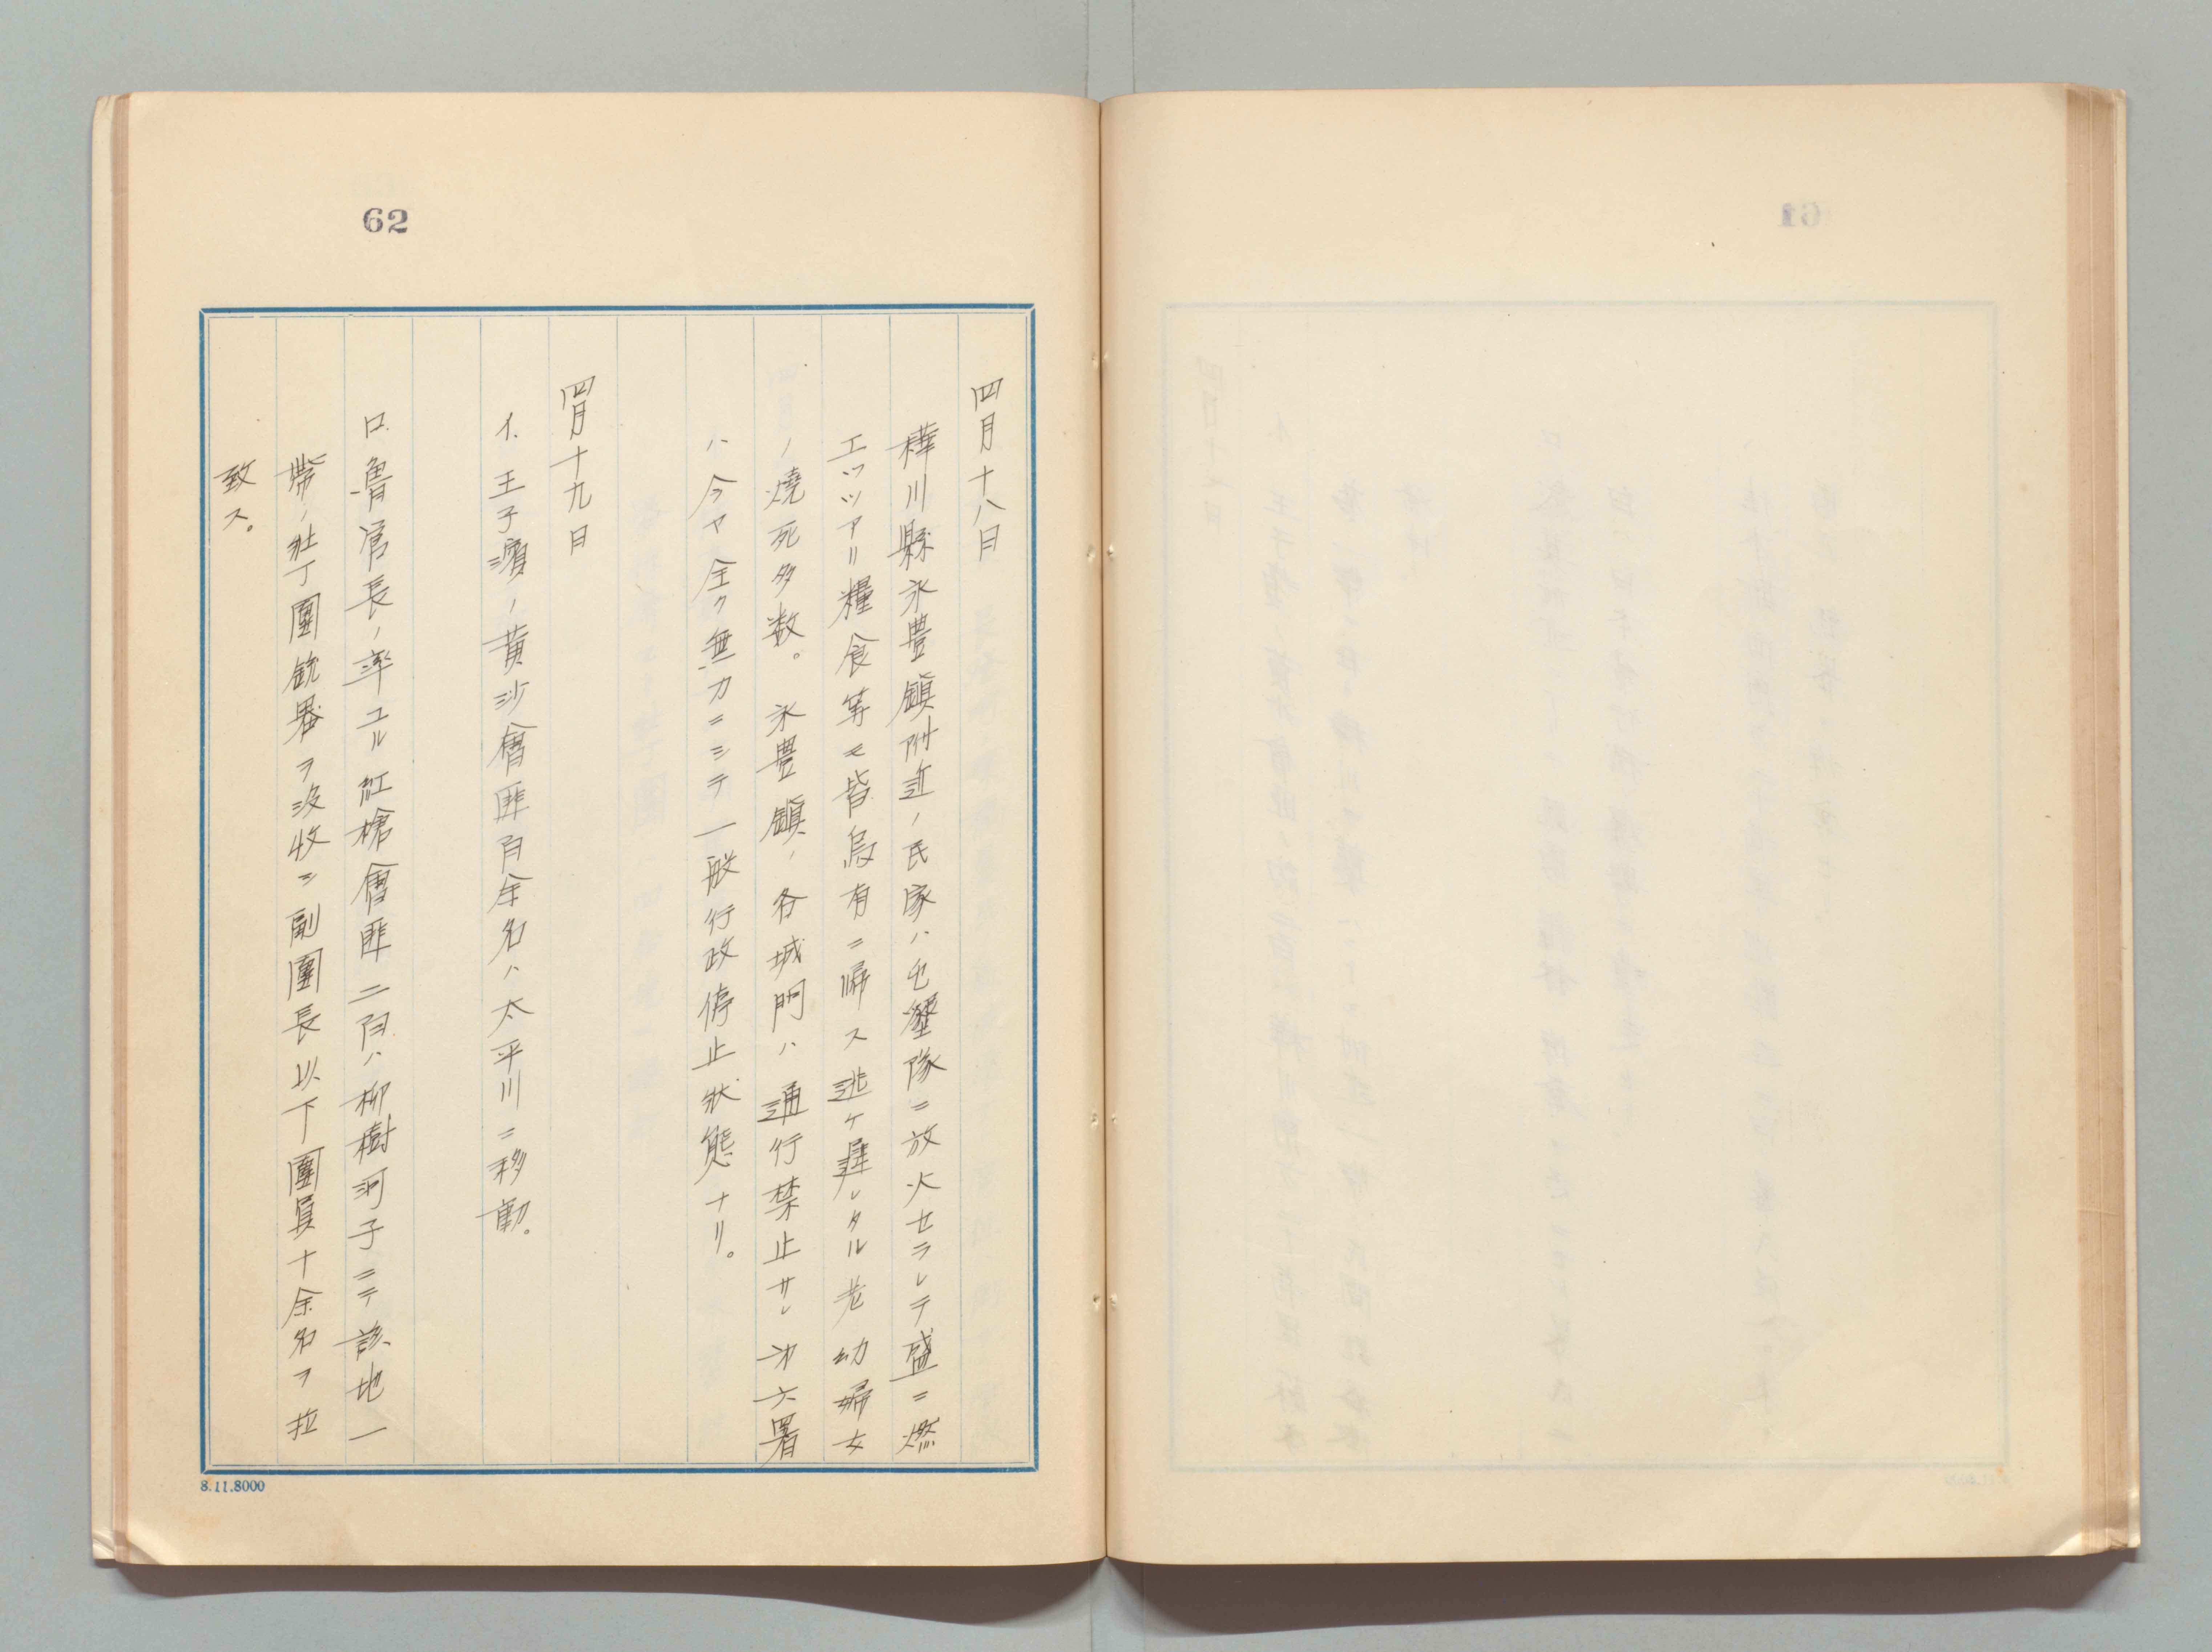 62
四月十八日
樺川縣永豊鎮附近ノ民家ハ屯墾隊ニ放火セラレテ盛ニ燃
エツツアリ糧食等モ皆烏有ニ帰ス逃ケ遅レタル老幼婦女
ノ燒死多数。 永豊鎮ノ各城門ハ通行禁止サレ 第六署
ハ今ヤ全ク無力ニシテ一般行政停止狀態ナリ。
四月十九日
イ. 王子濱ノ黄沙會匪百余名ハ太平川ニ移動。
ロ. 魯官長ノ率ユル紅槍會匪二百ハ柳樹河子ニテ該地一
帶ノ壮丁團銃器ヲ没收シ副團長以下團員十余名ヲ拉
致ス。
8.11.8000
61